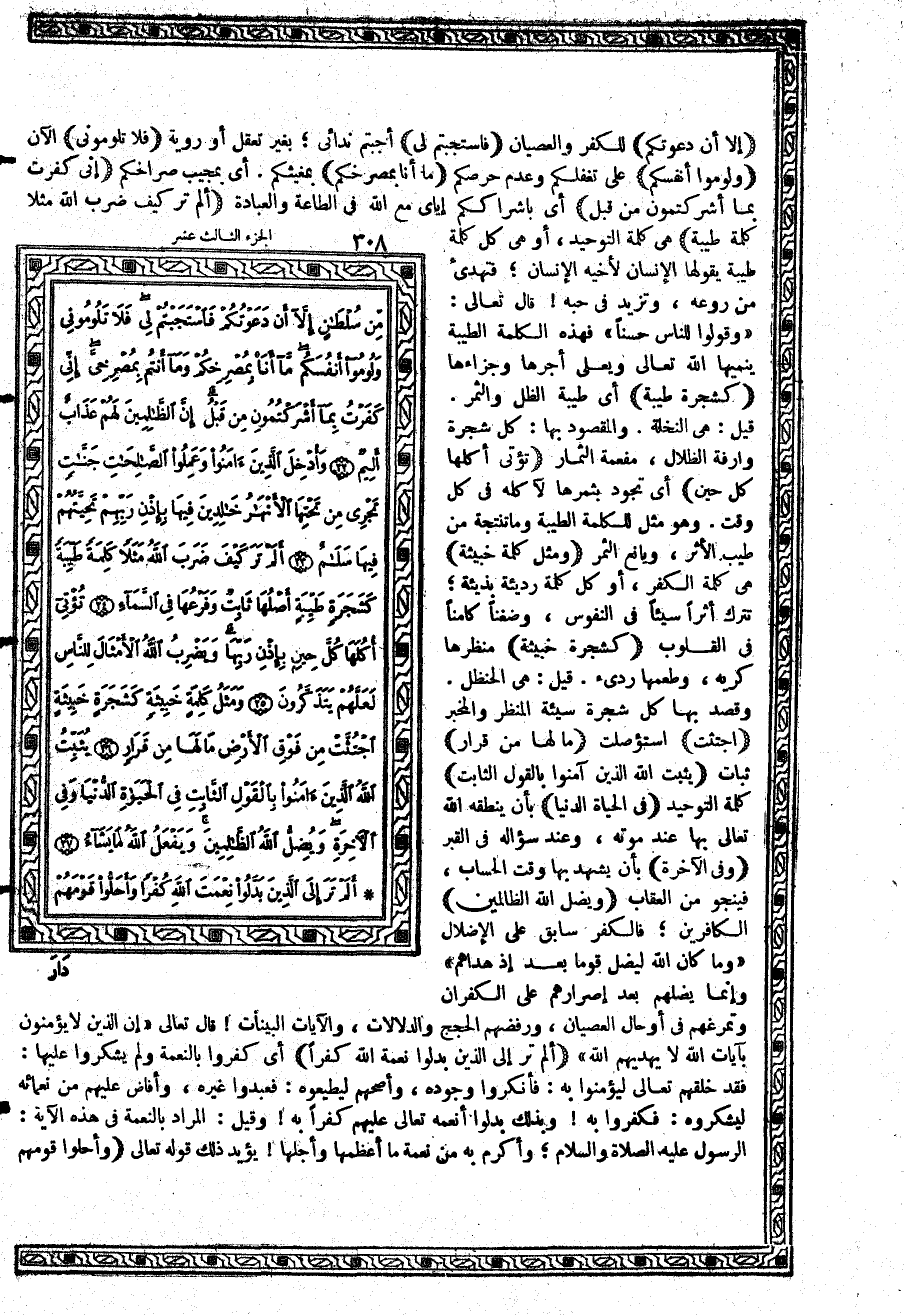 (إلا أن دعوتكم) للكفر والعصيان (فاستجبتم لى) أجبتم ندائى ؛ بغير تعقل أو روية (فلا تلومونى) الآن
(ولوموا أنفسكم) على تغفلكم وعدم حرصكم (ما أنا بمصرخكم) بمغيثكم . أى بمجيب صراخكم (إنى كفرت
بما أشركتمون من قبل) أى باشراككم إياى مع الله فى الطاعة والعبادة (ألم تر كيف ضرب الله مثلا
كلمة طيبة) هى كلمة التوحيد ، أو هى كل كلمة
طيبة يقولها الإنسان لأخيه الإنسان ؛ فتهدىء
من روعه ، وتزيد فى حبه ! قال تعالى :
«وقولوا للناس حسناً» فهذه الكلمة الطيبة
ينميها الله تعالى ويعلى أجرها وجزاءها
(كشجرة طيبة) أى طيبة الظل والثمر .
قيل : هى النخلة . والمقصود بها : كل شجرة
وارفة الظلال ، مفعمة الثمار (تؤتى أكلها
كل حين) أى تجود بثمرها لآكله فى كل
وقت . وهو مثل للكلمة الطيبة وماتنتجة من
طيب الأثر ، ويانع الثمر (ومثل كلمة خبيثة)
هى كلمة الكفر ، أو كل كلمة رديئة بذيئة ؛
تترك أثراً سيئاً فى النفوس ، وضغناً كامناً
فى القلوب (كشجرة خبيثة) منظرها
كريه ، وطعمها ردىء . قيل : هى الحنظل .
وقصد بها كل شجرة سيئة المنظر والمخبر
(اجتثت) استؤصلت (ما لها من قرار)
ثبات (يثبت الله الذين آمنوا بالقول الثابت)
كلمة التوحيد (فى الحياة الدنيا) بأن ينطقه الله
تعالى بها عند موته ، وعند سؤاله فى القبر
(وفى الآخرة) بأن يشهد بها وقت الحساب ،
فينجو من العقاب (ويضل الله الظالمين)
الكافرين ؛ فالكفر سابق على الإضلال
«وما كان الله ليضل قوما بعد إذ هداهم»
وإنما يضلهم بعد إصرارهم على الكفران
الجزء الثالث عشر ٣٠٨
مِّن سُلْطَٰنٍ إِلَّآ أَن دَعَوْتُكُمْ فَٱسْتَجَبْتُمْ لِى ۖ فَلَا تَلُومُونِى
وَلُومُوٓا۟ أَنفُسَكُم ۖ مَّآ أَنَا۠ بِمُصْرِخِكُمْ وَمَآ أَنتُم بِمُصْرِخِىَّ ۖ إِنِّى
كَفَرْتُ بِمَآ أَشْرَكْتُمُونِ مِن قَبْلُ ۗ إِنَّ ٱلظَّٰلِمِينَ لَهُمْ عَذَابٌ
أَلِيمٌ ﴿٢٢﴾ وَأُدْخِلَ ٱلَّذِينَ ءَامَنُوا۟ وَعَمِلُوا۟ ٱلصَّٰلِحَٰتِ جَنَّٰتٍ
تَجْرِى مِن تَحْتِهَا ٱلْأَنْهَٰرُ خَٰلِدِينَ فِيهَا بِإِذْنِ رَبِّهِمْ ۖ تَحِيَّتُهُمْ
فِيهَا سَلَٰمٌ ﴿٢٣﴾ أَلَمْ تَرَ كَيْفَ ضَرَبَ ٱللَّهُ مَثَلًا كَلِمَةً طَيِّبَةً
كَشَجَرَةٍ طَيِّبَةٍ أَصْلُهَا ثَابِتٌ وَفَرْعُهَا فِى ٱلسَّمَآءِ ﴿٢٤﴾ تُؤْتِىٓ
أُكُلَهَا كُلَّ حِينٍۭ بِإِذْنِ رَبِّهَا ۗ وَيَضْرِبُ ٱللَّهُ ٱلْأَمْثَالَ لِلنَّاسِ
لَعَلَّهُمْ يَتَذَكَّرُونَ ﴿٢٥﴾ وَمَثَلُ كَلِمَةٍ خَبِيثَةٍ كَشَجَرَةٍ خَبِيثَةٍ
ٱجْتُثَّتْ مِن فَوْقِ ٱلْأَرْضِ مَا لَهَا مِن قَرَارٍ ﴿٢٦﴾ يُثَبِّتُ
ٱللَّهُ ٱلَّذِينَ ءَامَنُوا۟ بِٱلْقَوْلِ ٱلثَّابِتِ فِى ٱلْحَيَوٰةِ ٱلدُّنْيَا وَفِى
ٱلْءَاخِرَةِ ۖ وَيُضِلُّ ٱللَّهُ ٱلظَّٰلِمِينَ ۚ وَيَفْعَلُ ٱللَّهُ مَا يَشَآءُ ﴿٢٧﴾
* أَلَمْ تَرَ إِلَى ٱلَّذِينَ بَدَّلُوا۟ نِعْمَتَ ٱللَّهِ كُفْرًا وَأَحَلُّوا۟ قَوْمَهُمْ
دَارَ
وتمرغهم فى أوحال العصيان ، ورفضهم الحجج والدلالات ، والآيات البينأت ! قال تعالى «إن الذين لايؤمنون
بآيات الله لا يهديهم الله» (ألم تر إلى الذين بدلوا نعمة الله كفراً) أى كفروا بالنعمة ولم يشكروا عليها :
فقد خلقهم تعالى ليؤمنوا به : فأنكروا وجوده ، وأصحهم ليطيعوه : فعبدوا غيره ، وأفاض عليهم من نعمائه
ليشكروه : فكفروا به ! وبذلك بدلوا أنعمه تعالى عليهم كفراً به ! وقيل : المراد بالنعمة فى هذه الآية :
الرسول عليه الصلاة والسلام ؛ وأكرم به من نعمة ما أعظمها وأجلها ! يؤيد ذلك قوله تعالى (وأحلوا قومهم